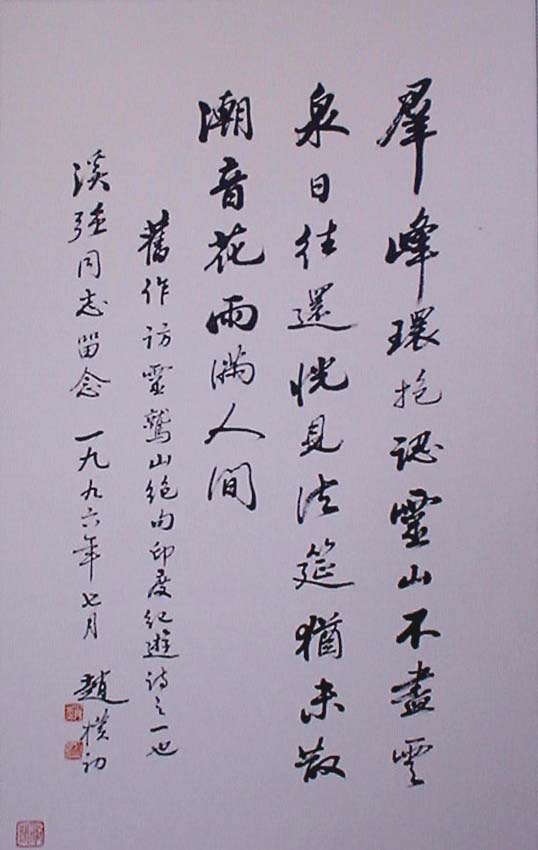 羣峰環抱認靈山不盡雲
泉日往還恍見法筵猶未散
潮音花雨滿人间
舊作访靈鷲山绝句印度纪遊诗之一也
漢强同志留念 一九九六年七月 趙樸初